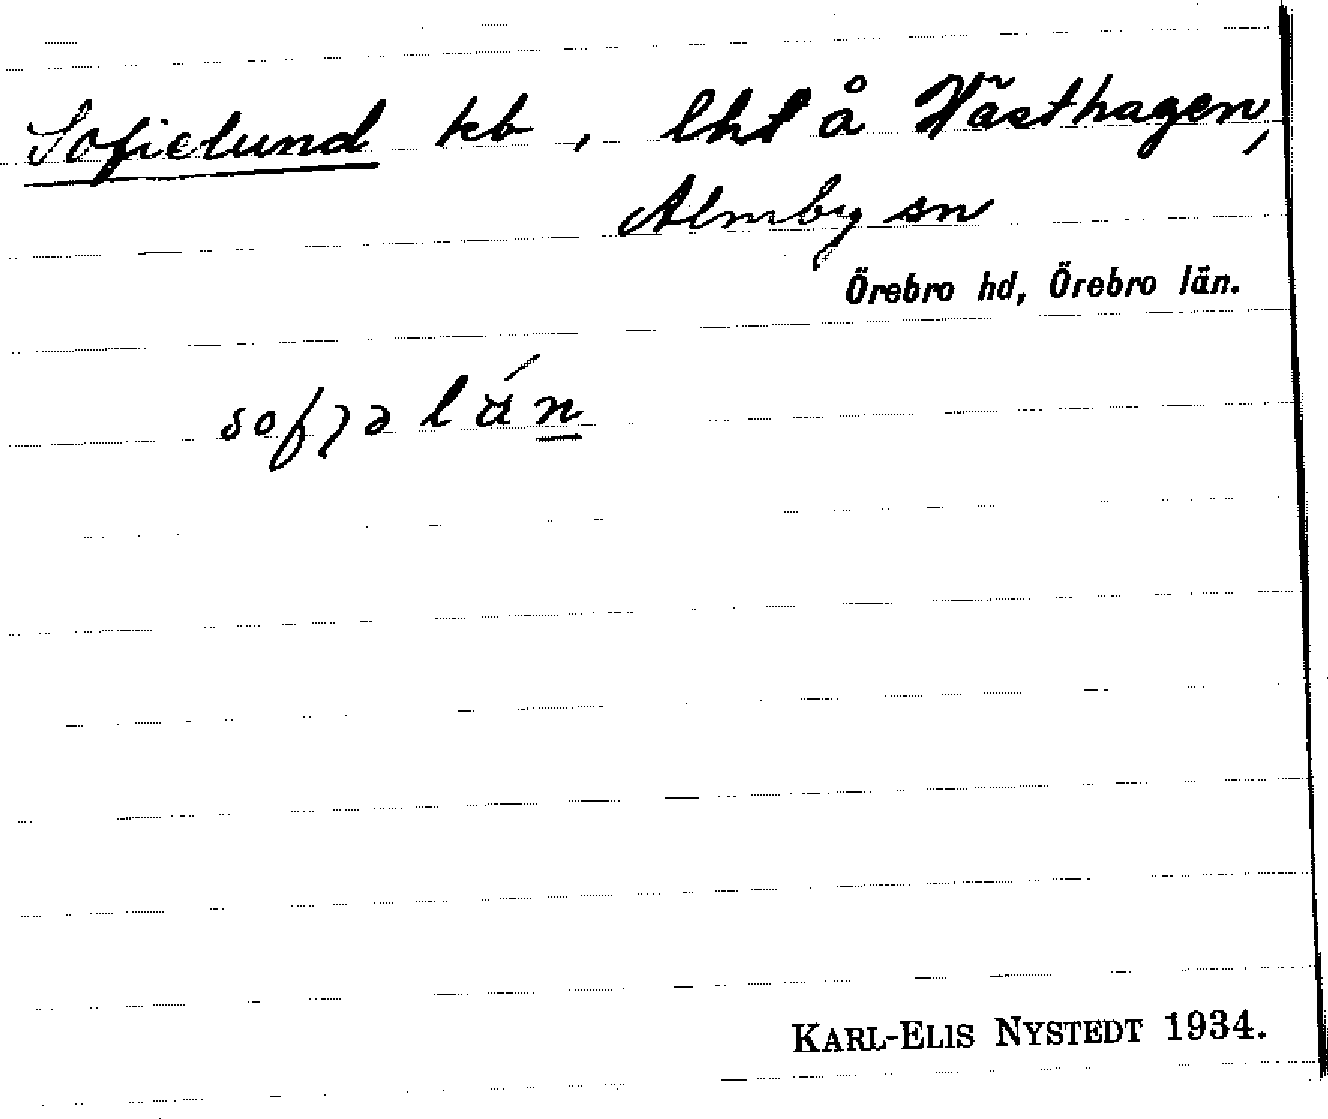 Sofielund tcb, lht å Västhagen,
Almby sn
Örebro hd, Örebro län.
KARL-ELIS NYSTEDT 1934.